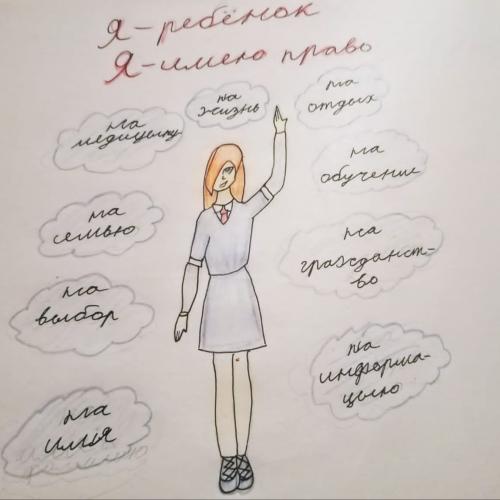 Я-ребёнок
Я-имею право
на
жизнь
на
отдых
на
медицину
на
обучение
на
семью
на
гражданст-
во
на
выбор
на
информа-
цыю
на
имя